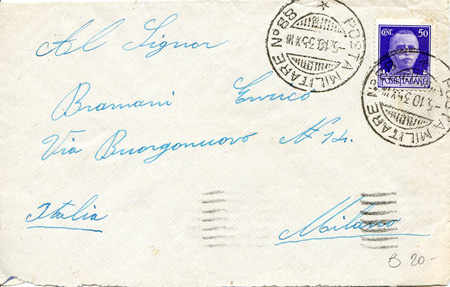 POSTA MILITARE No 88
-5.10.35.XIII
CENT. 50
POSTE ITALIANE
POSTA MILITARE No
-5.10.35
Al Signor
Bramani Enrico
Via Buorgonuovo N. 14.
Italia Milano
B 20-